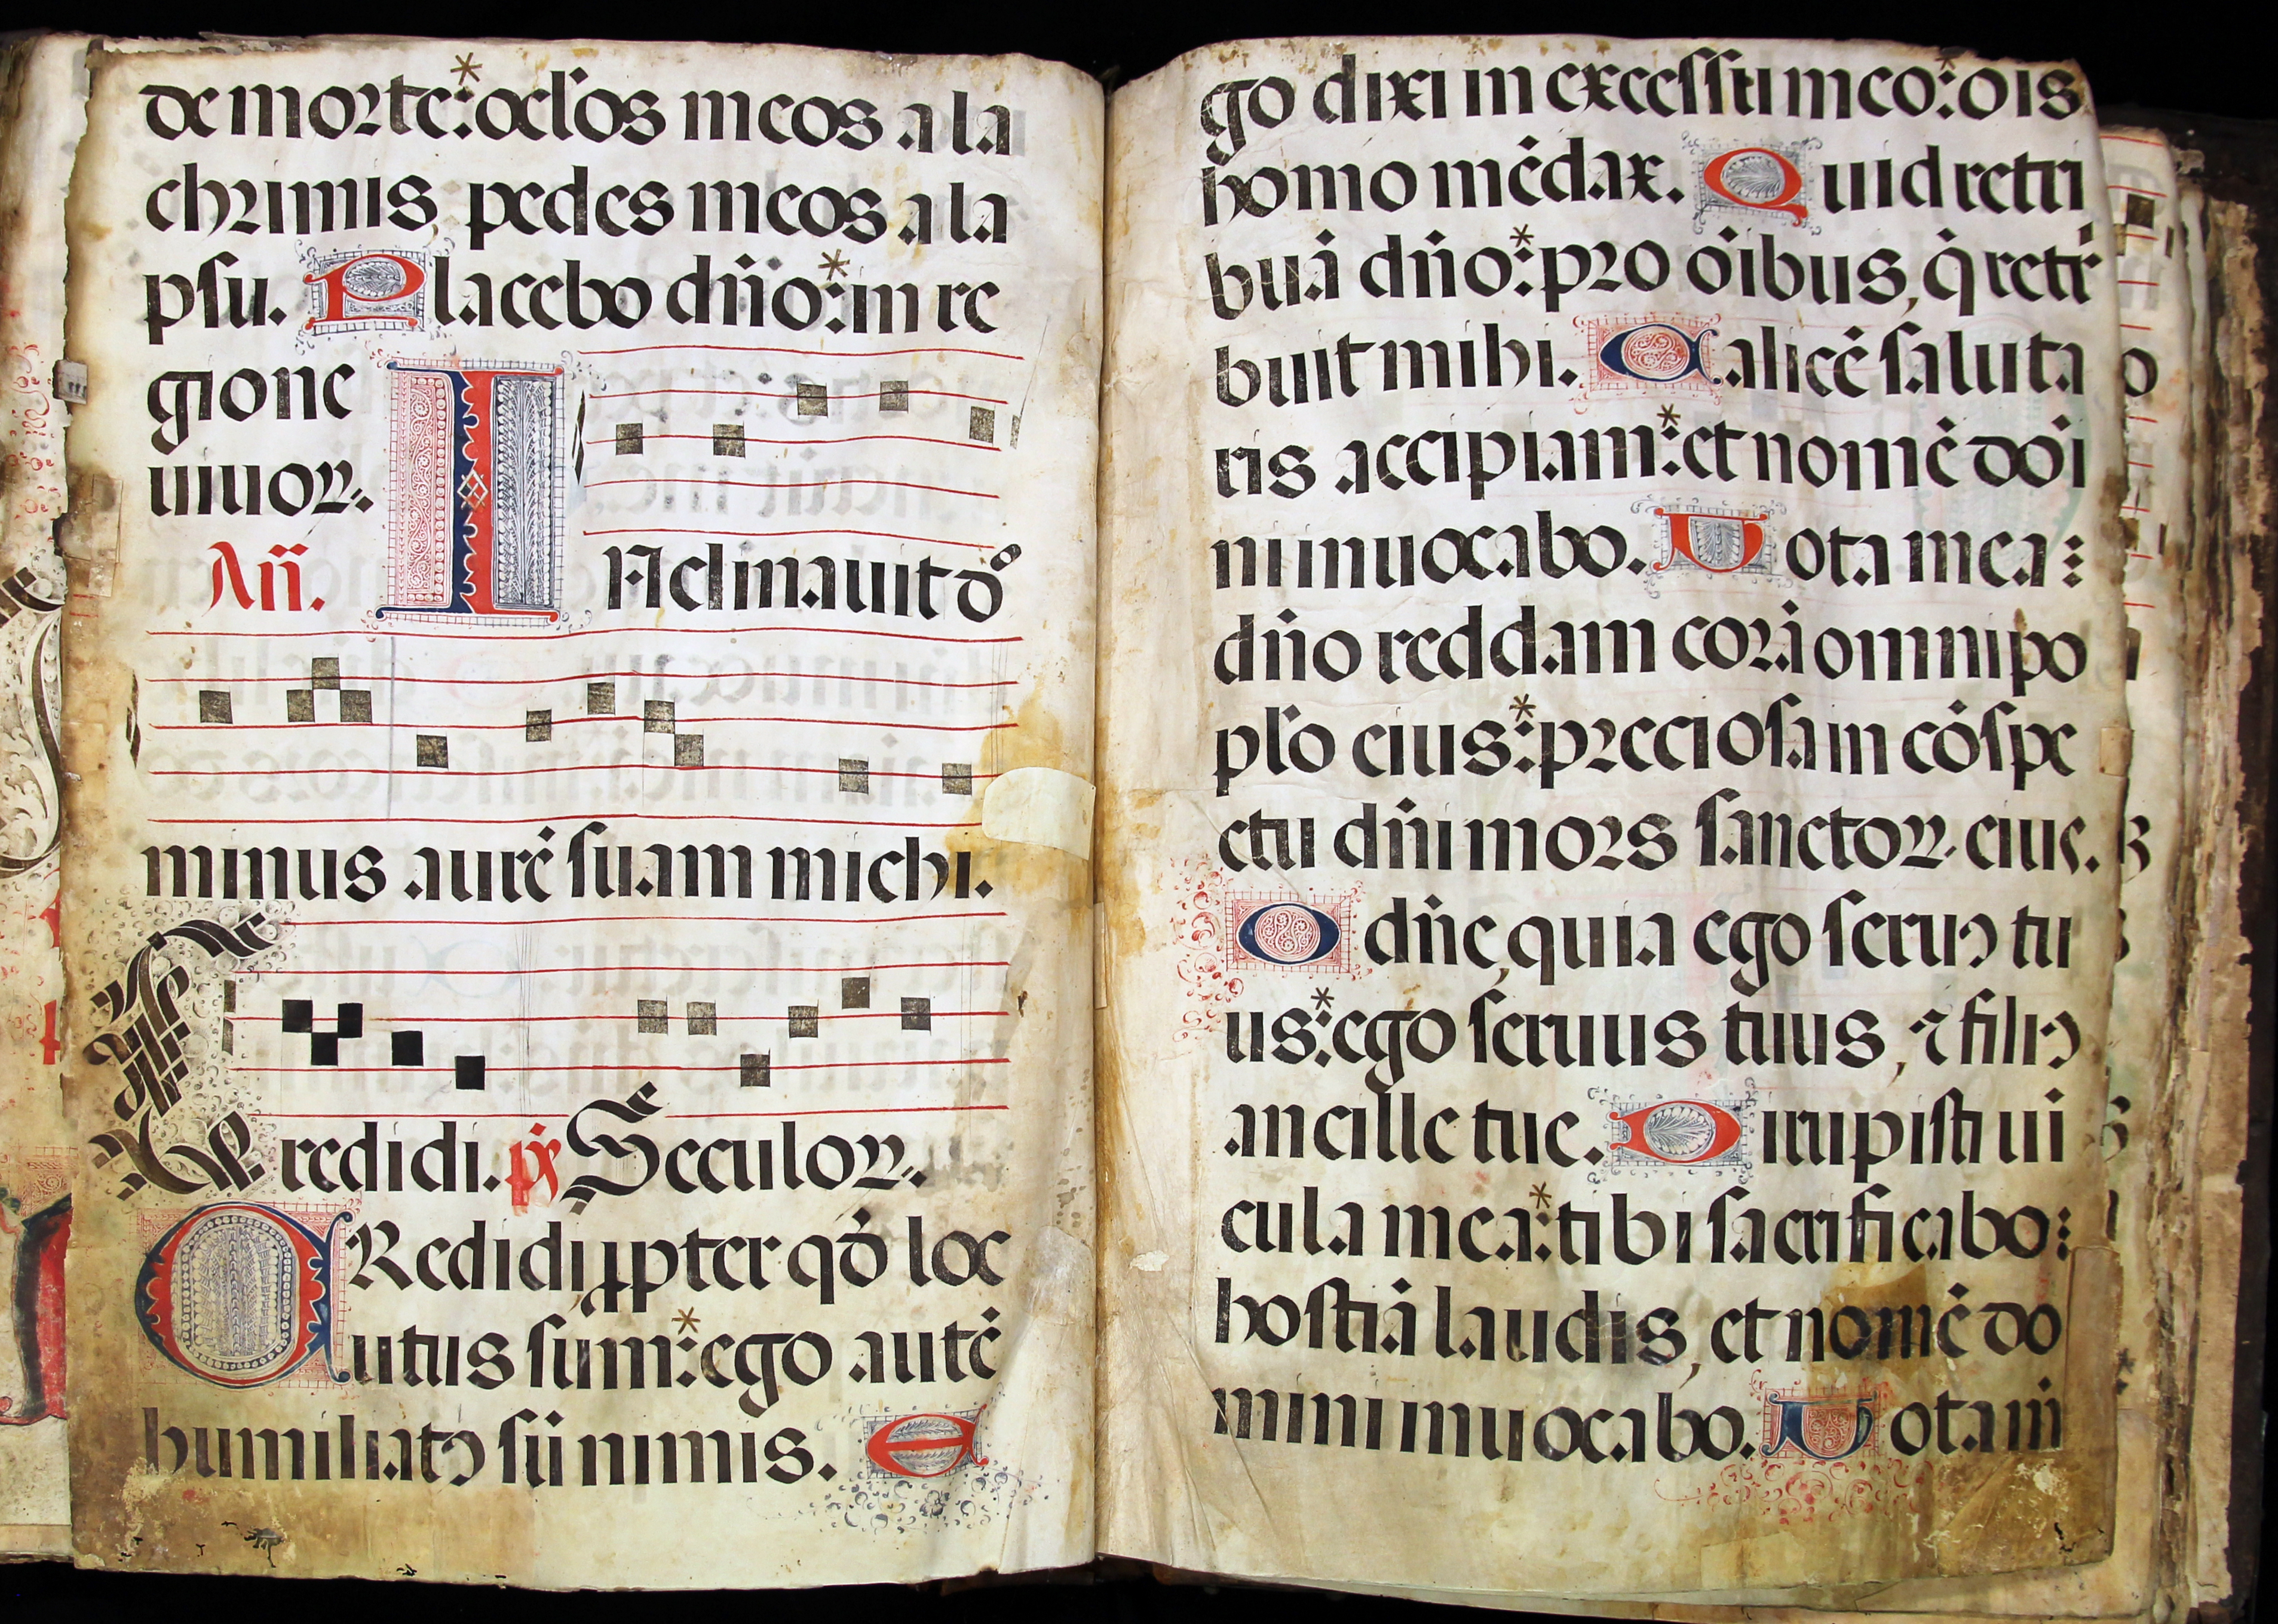 de morte:* ocl'os meos a la
chrimis, pedes meos a la
psu. Placebo dño:* in re
gione
uiuoꝝ.
Añ. INclinauit dº
minus aurē suam michi.
Credidi. ps̄ Seculoꝝ.
CRedidi, ꝓpter qđ loc
utus sum:* ego autē
humiliatꝰ sū nimis. E
go dixi in excessu meo:* ois
homo mēdax. Quid retri
buā dño:* pro oībus, q̄ retr
buit mihi. Calicē saluta
ris accipiam:* et nomē doi
ni inuocabo. Uota mea:
dño reddam corā omni po
pl'o eius:* preciosa in cōspe
ctu dñi mors sanctoꝝ eius.
O dñe, quia ego seruꝰ tu
us:* ego seruus tuus, ⁊ filiꝰ
ancille tue. Dirupisti ui
cula mea:* tibi sacrificabo:
hostiā laudis, et nomē do
mini inuocabo. Uota m̄